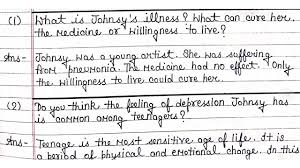 (1) What is Johnsy's illness? What can cure her.
the medicine or willingness to live?
Ans- Johnsy was a young artist. She was suffering
from pneumonia. The medicine had no effect. Only
the willingness to live could cure her.
(2) Do you think the feeling of depression Johnsy has
is common among teenagers?
Ans- Teenage is the most sensitive age of life. It is
a period of physical and emotional change. In this